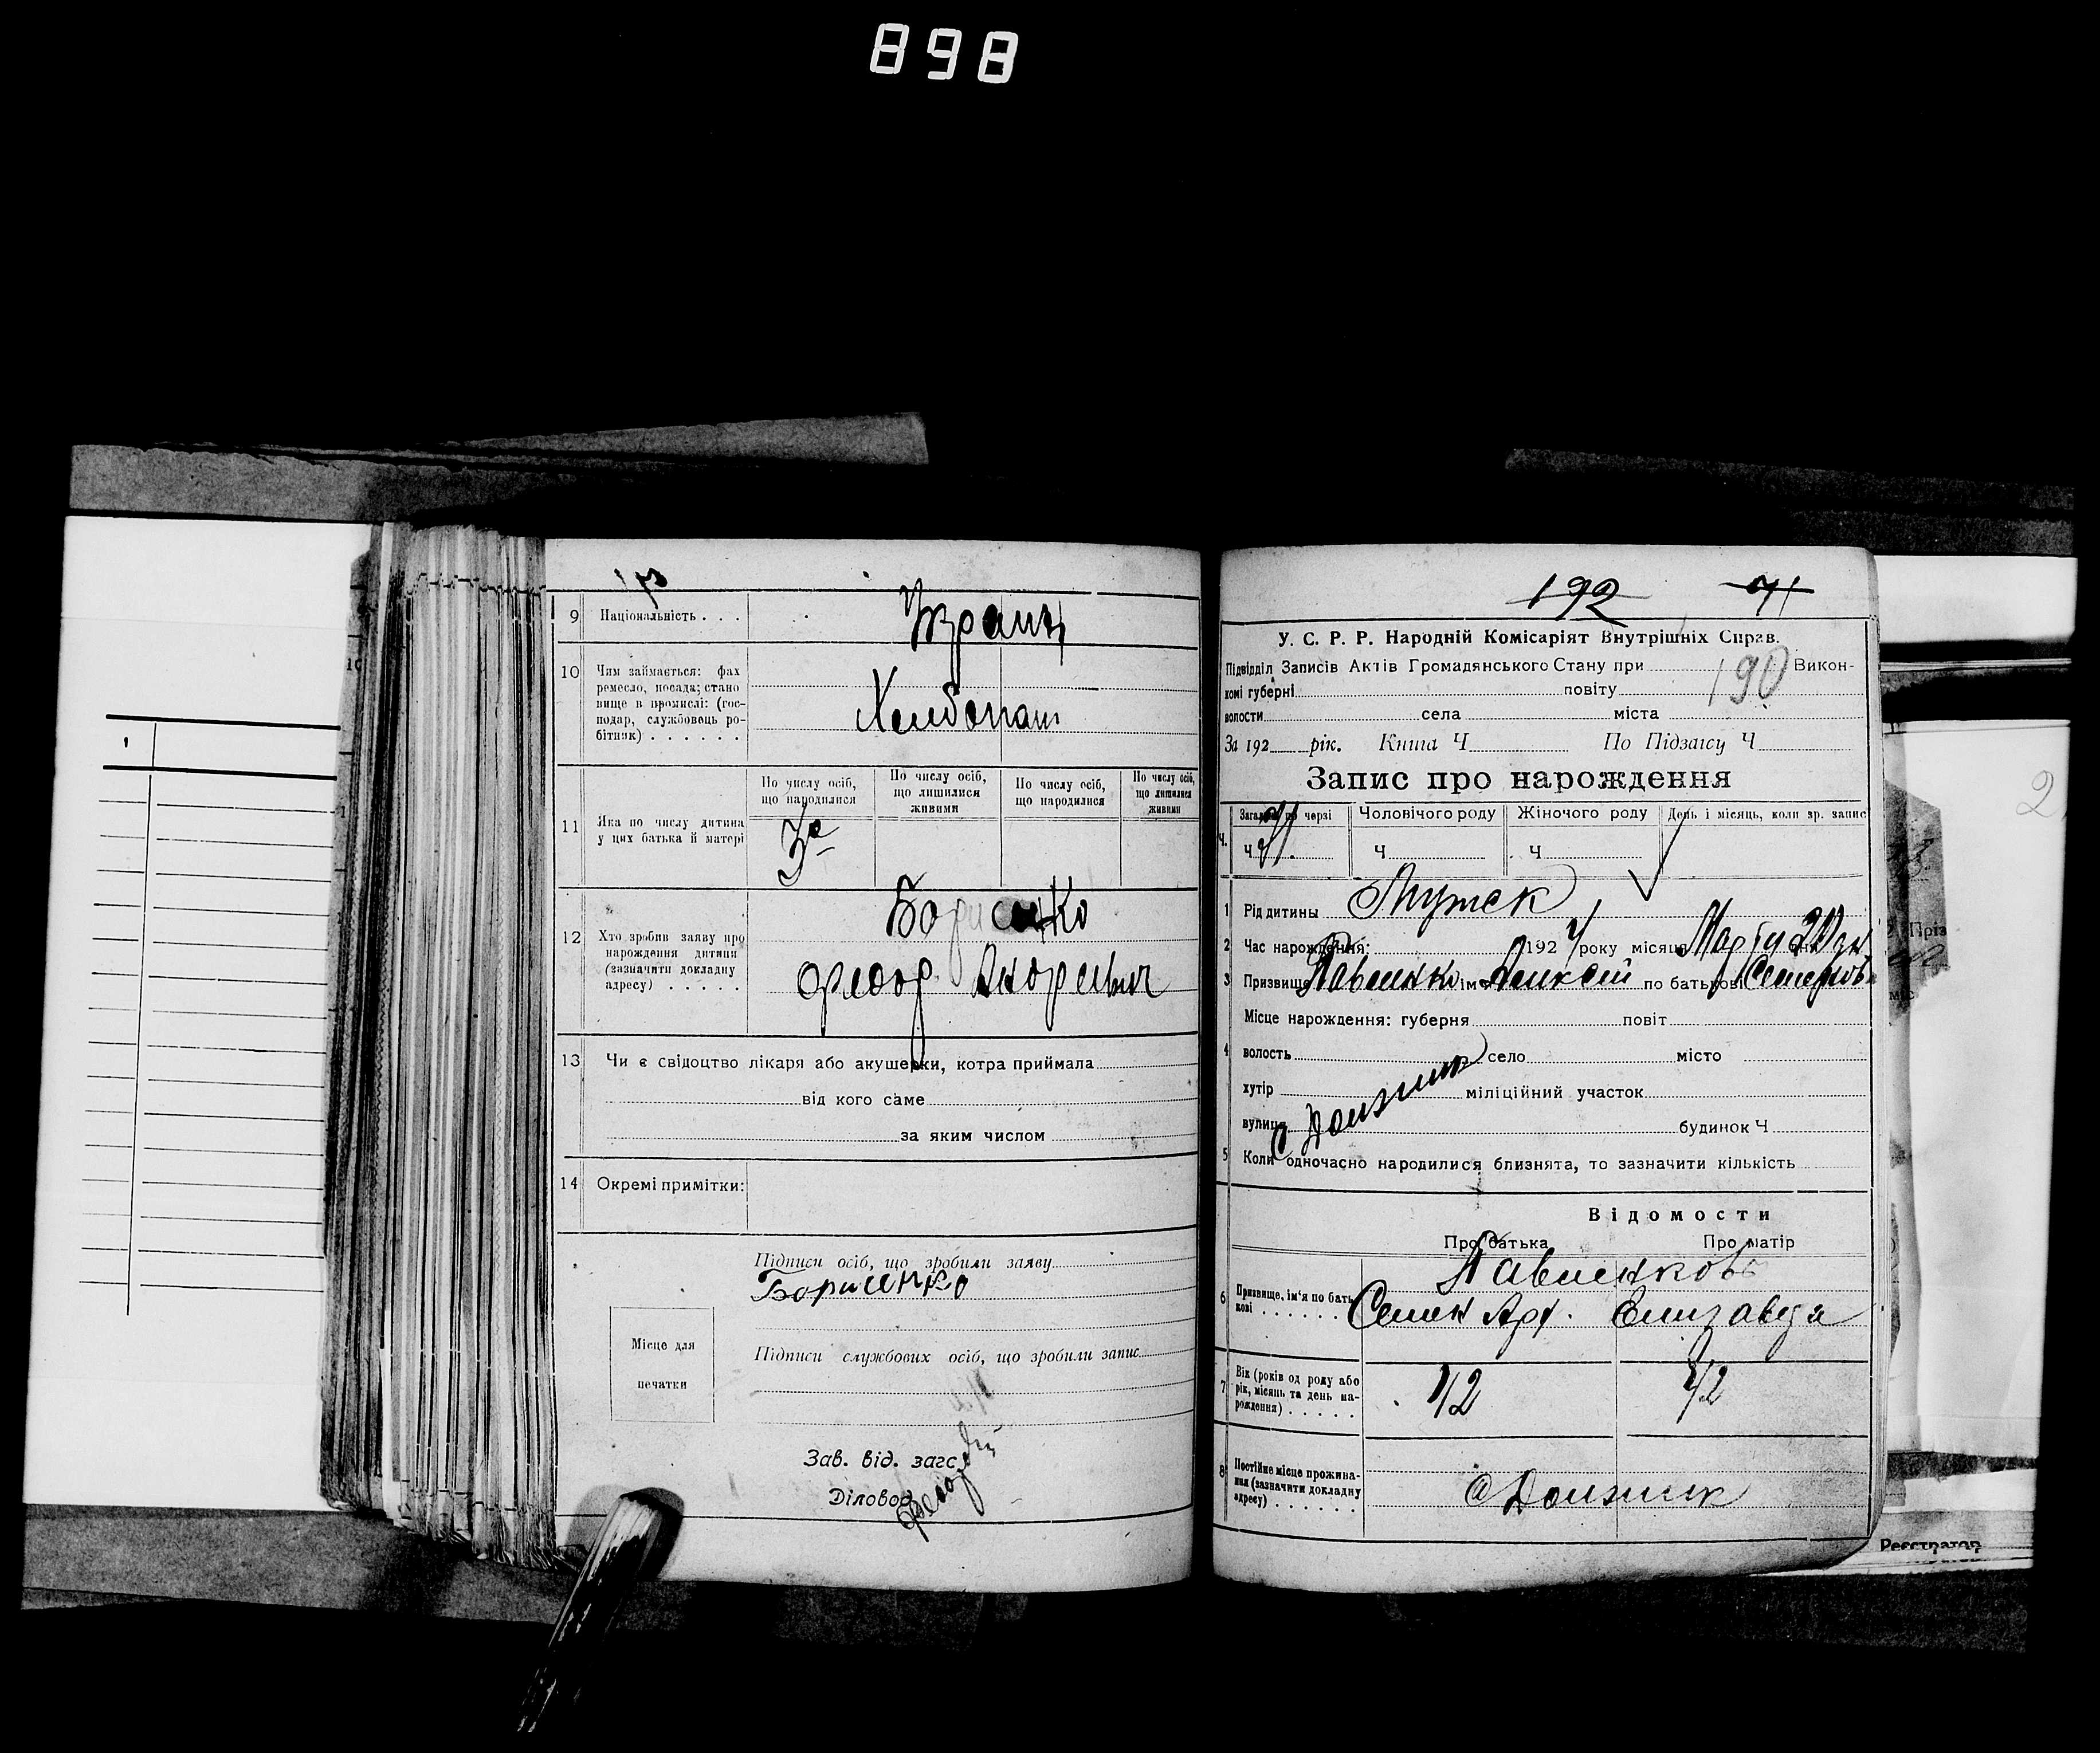 898
9 Національність . . .
Украин
10 Чим займається: фах
ремесло, посада; стано
вище в промислі: (гос-
подар, службовець ро-
бітник) . . . . . .
Хлебопаш
По числу осіб,
що народилися
По числу осіб,
що лишилися
живими
По числу осіб,
що народилися
По числу осіб,
що лишилися
живими
11 Яка по числу дитина
у цих батька й матері
3е
12 Хто зробив заяву про
нарождення дитини
(зазначити докладну
адресу) . . . . .
Борисенко
Федор Андреевич
13 Чи є свідоцтво лікаря або акушерки, котра приймала
від кого саме
за яким числом
14 Окремі примітки:
Підписи осіб, що зробили заяву
Борисенко
Місце для
печатки
Підписи службових осіб, що зробили запис
Зав. від. загс
Діловод
192 71
У. С. Р. Р. Народній Комісаріят Внутрішніх Справ.
Підвідділ Записів Актів Громадянського Стану при 190 Викон-
комі губерні повіту
волости села міста
За 192 рік. Книга Ч По Підзагсу Ч
Запис про нарождення
Ч. Загальн. по черзі Чоловічого роду Жіночого роду День і місяць, коли зр. запис
Ч 71. Ч Ч
1 Рід дитины Мужск
2 Час нарождення: 192 року місяця Марту 20 дня
3 Призвище Павленко ім'я Алексей по батькові Семенов
Місце нарождення: губерня повіт
4 волость село місто
хутір міліційний участок
вулиця будинок Ч
с Должик
5 Коли одночасно народилися близнята, то зазначити кількість
Відомости
Про батька Про матір
Павленково
6 Призвище, ім'я по бать
кові . . . . . Семен Арт. Елизавета
7 Вік (років од роду або
рік, місяць та день на-
рождення) . . . . . 42 42
8 Постійне місце прожива-
ння (зазначити докладну
адресу) . . . . . . с Должик
Пріз
Реєстратор
2